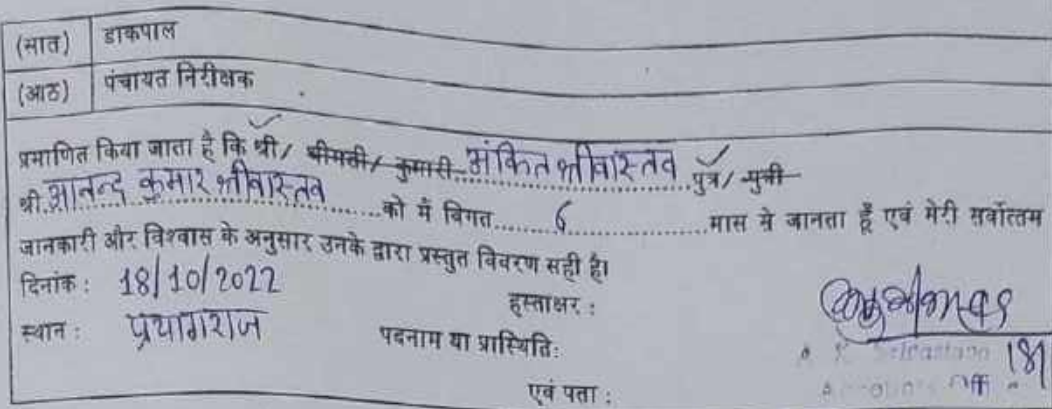 (सात) डाकपाल
(आठ) पंचायत निरीक्षक
प्रमाणित किया जाता है कि श्री/ श्रीमती/ कुमारी अंकित श्रीवास्तव पुत्र/ पुत्री
श्री आनन्द कुमार श्रीवास्तव को मैं विगत 6 मास से जानता हूँ एवं मेरी सर्वोत्तम
जानकारी और विश्वास के अनुसार उनके द्वारा प्रस्तुत विवरण सही है।
दिनांक : 18/10/2022
हस्ताक्षर :
स्थान : प्रयागराज
पदनाम या प्रास्थिति:
Srivastava 18/
एवं पता :